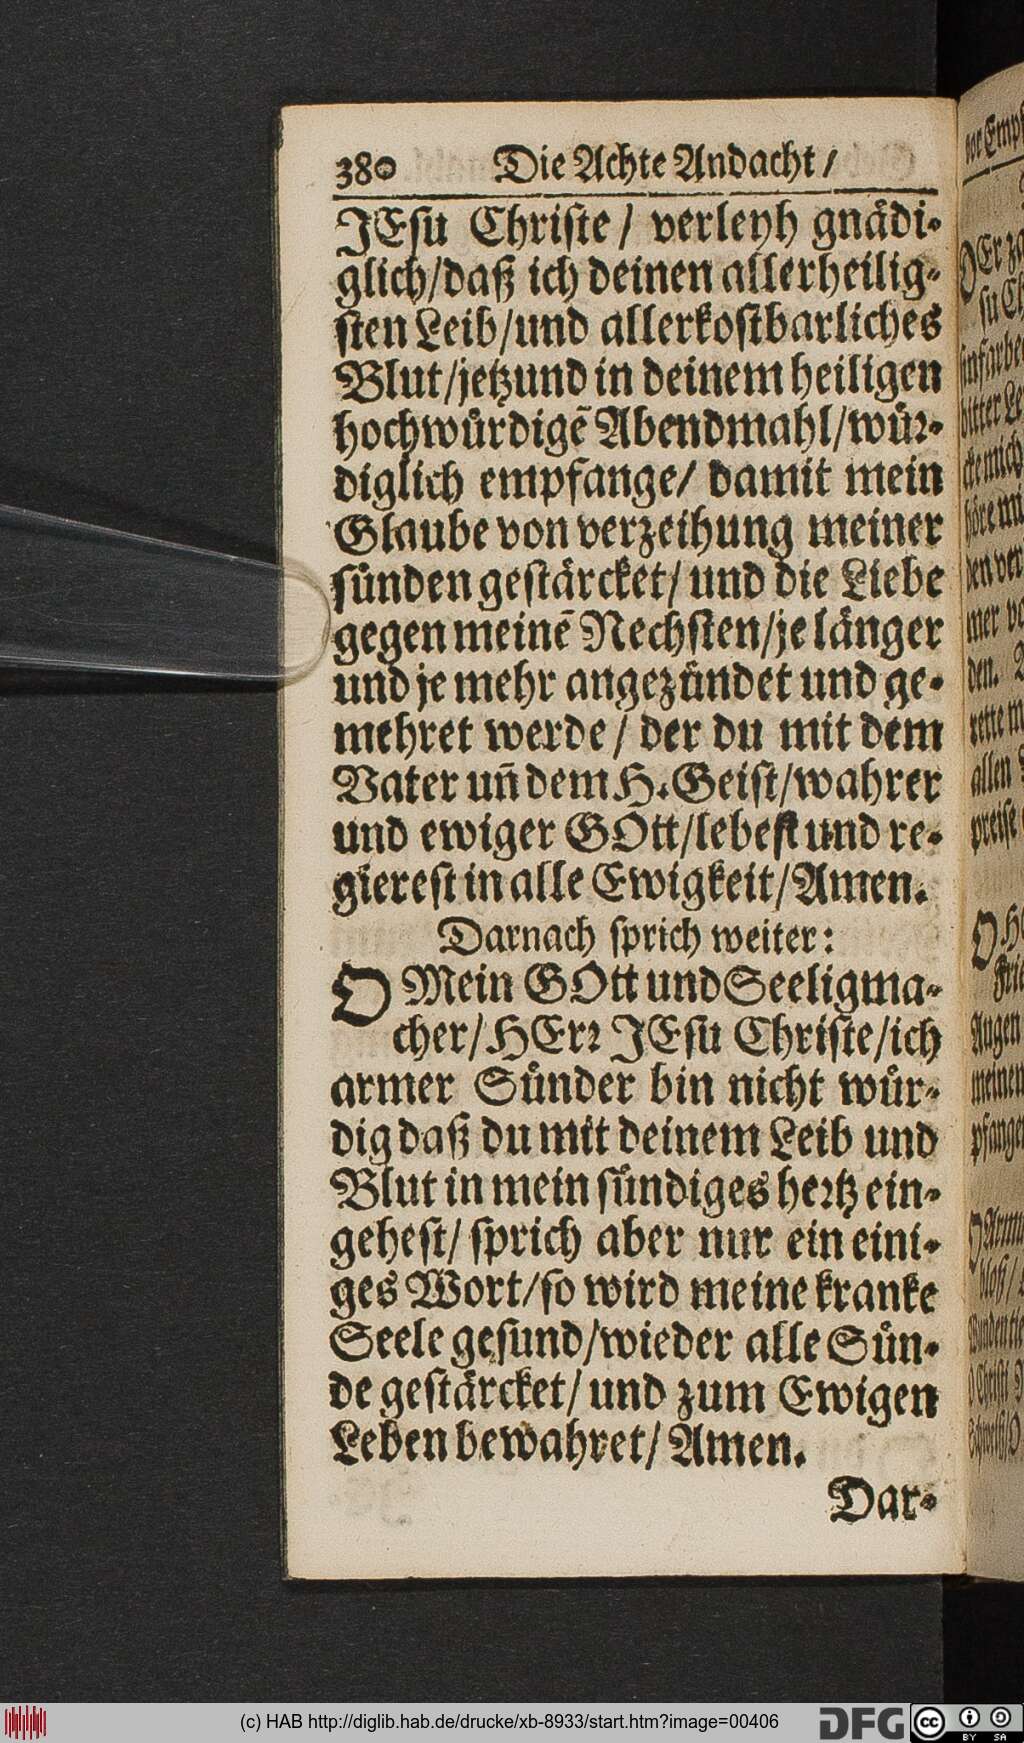 380 Die Achte Andacht /
JEsu Christe / verleyh gnädi-
glich / daß ich deinen allerheilig-
sten Leib / und allerkostbarliches
Blut / jetzund in deinem heiligen
hochwürdigẽ Abendmahl / wür-
diglich empfange / damit mein
Glaube von verzeihung meiner
sünden gestärcket / und die Liebe
gegen meinẽ Nechsten / je länger
und je mehr angezündet und ge-
mehret werde / der du mit dem
Vater uñ dem H. Geist / wahrer
und ewiger GOtt / lebest und re-
gierest in alle Ewigkeit / Amen.
Darnach sprich weiter:
O Mein GOtt und Seeligma-
cher / HErr JEsu Christe / ich
armer Sünder bin nicht wür-
dig daß du mit deinem Leib und
Blut in mein sündiges hertz ein-
gehest / sprich aber nur ein eini-
ges Wort / so wird meine kranke
Seele gesund / wieder alle Sün-
de gestärcket / und zum Ewigen
Leben bewahret / Amen.
Dar-
(c) HAB http://diglib.hab.de/drucke/xb-8933/start.htm?image=00406
DFG
cc BY SA